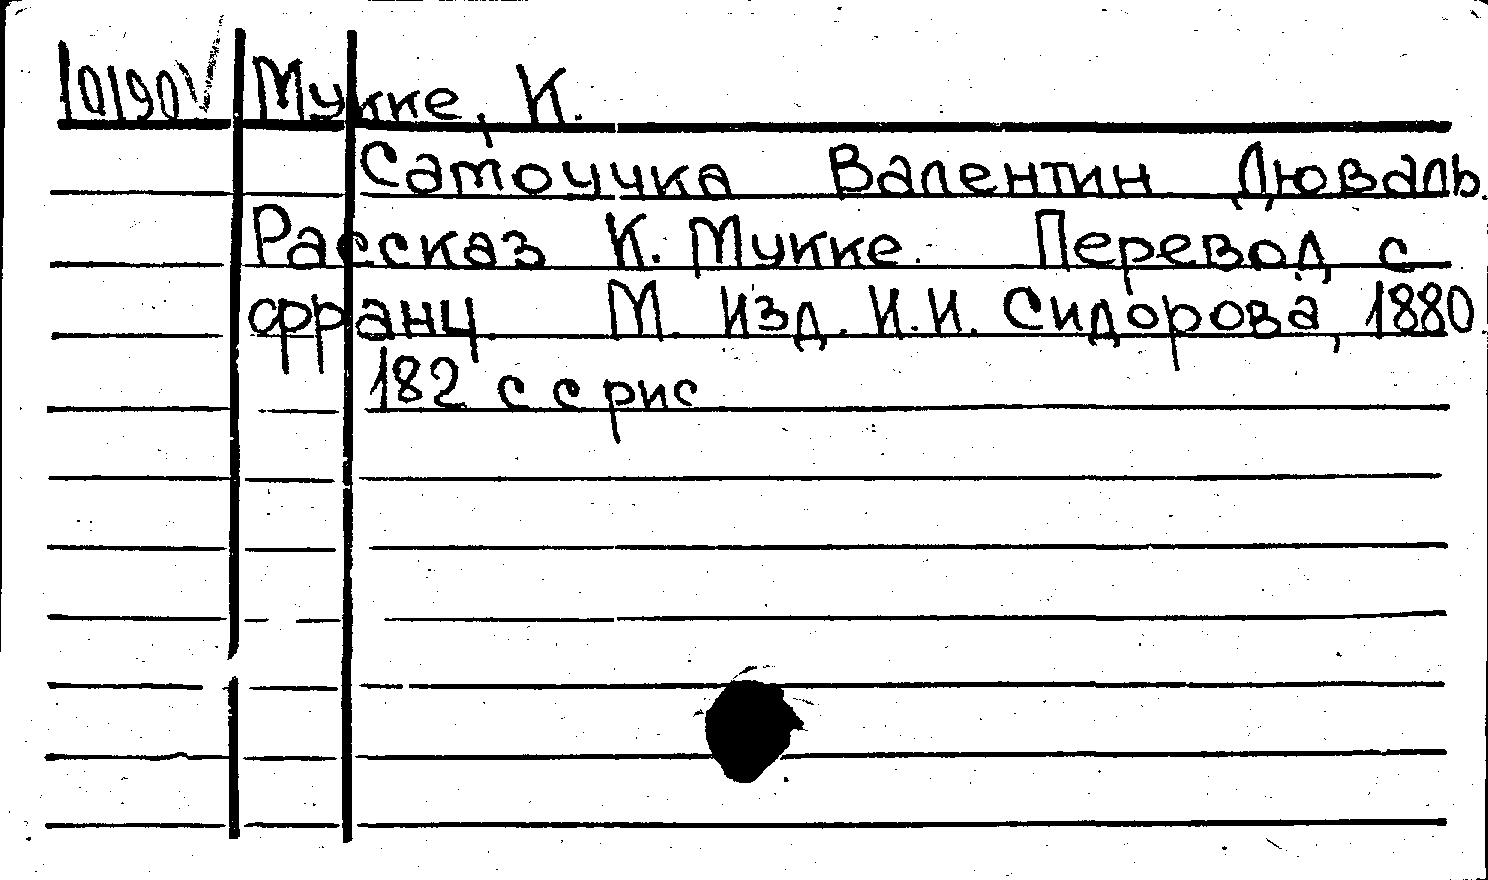 10190 Мукке, К.
Самоучка Валентин Дюваль.
Рассказ К. Мукке. Перевод с
франц. М. Изд. И.И. Сидорова, 1880
182 с с рис